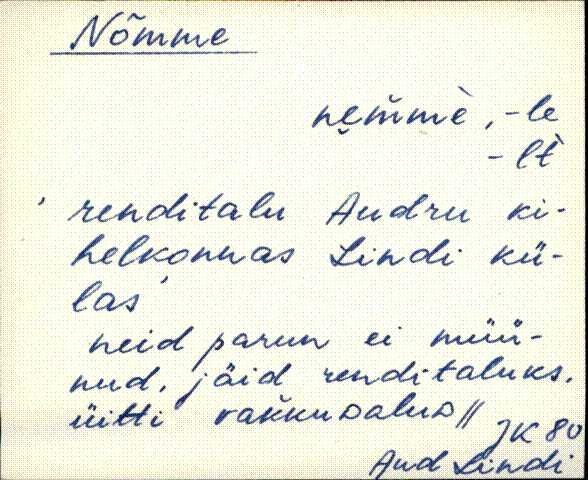 Nõmme
nem̆mè, -le
- lt̀
' renditalu Audru ki-
helkonnas Lindi kü-
las'
neid parun ei müü-
nud, jäid renditaluks.
üitti
JK 80
Aud Lindi